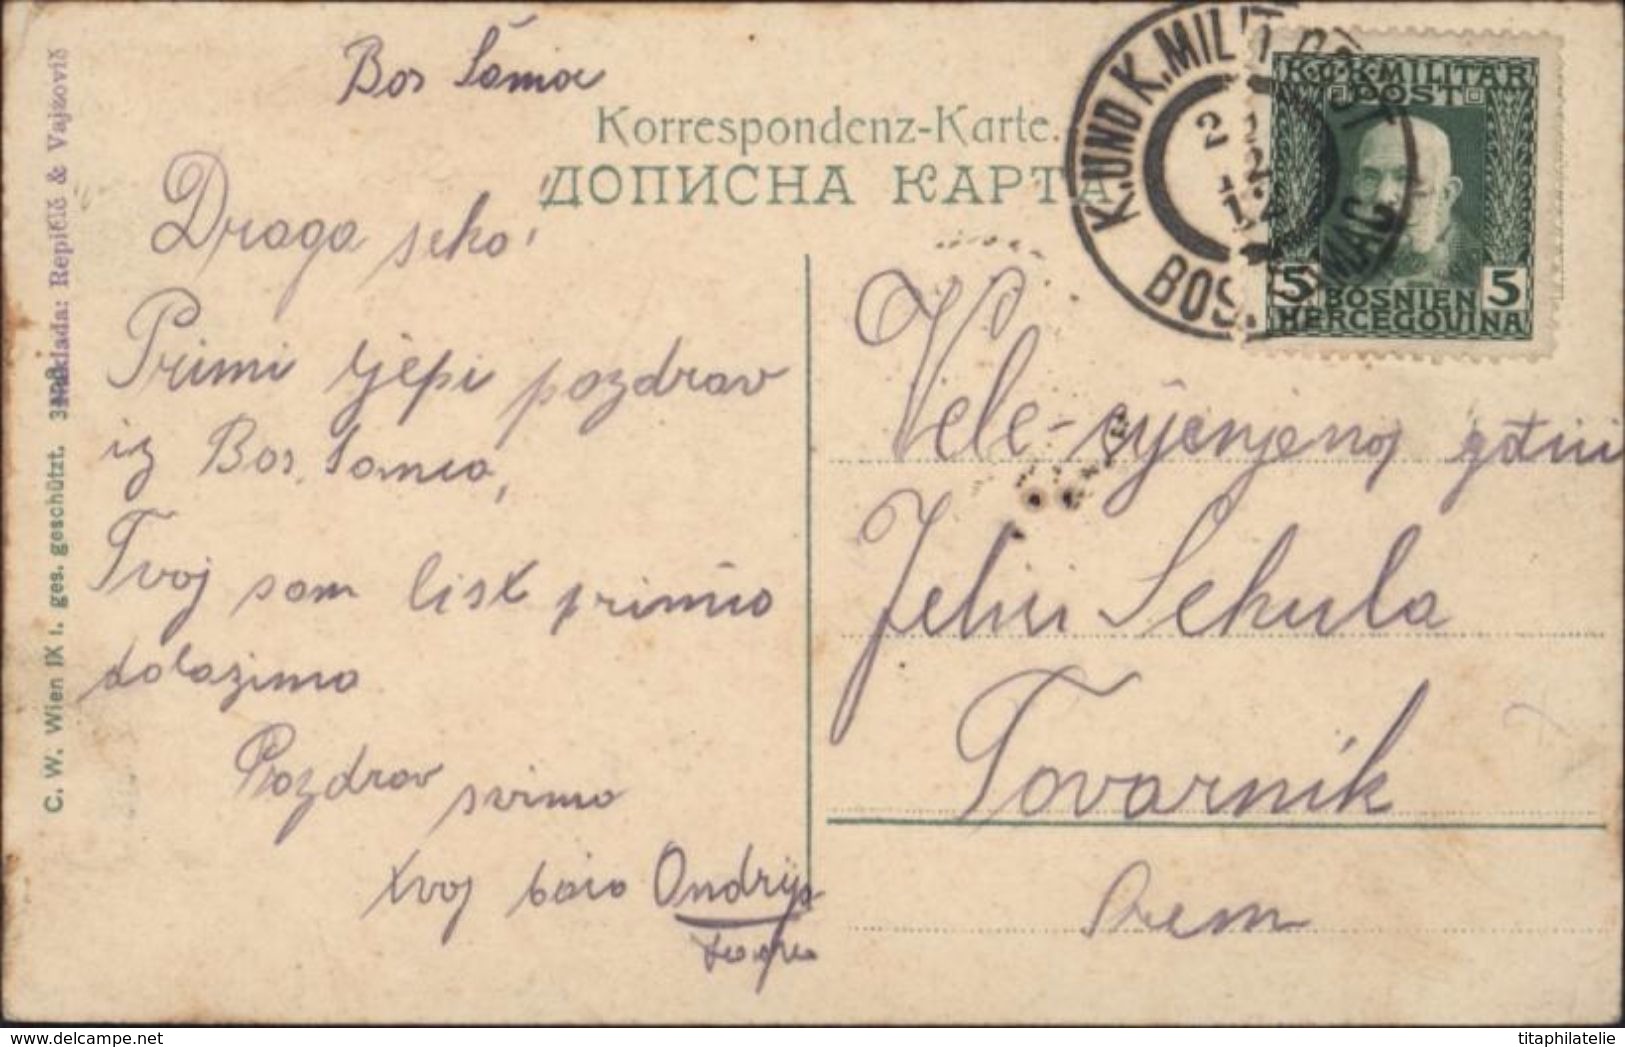 Bos Šamac
Korrespondenz-Karte.
ДОПИСНА КАРТА
K. UND K. MILIT. POST
2 1
12
12
BOS. ŠAMAC
K.U.K. MILITÄR
POST
5 5
BOSNIEN
HERCEGOVINA
Draga seko!
Primi ljepi pozdrav
iz Bos. Šamca,
Tvoj sam list primio
dolazimo
Pozdrav svima
tvoj baco Ondrija
Vele-cijenjenoj gđtini
Jelvi Sekula
Tovarnik
Srem
C. W. Wien IX i. ges. geschützt.
Naklada: Repičić & Vajzović
titaphilatelie